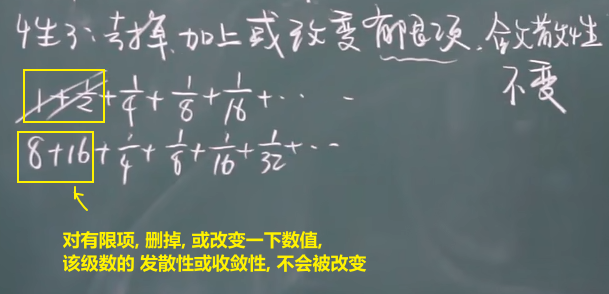 性3：去掉、加上或改变有限项，敛散性不变
1+1/2+1/4+1/8+1/16+⋯
8+16+1/4+1/8+1/16+1/32+⋯
对有限项, 删掉, 或改变一下数值,
该级数的 发散性或收敛性, 不会被改变